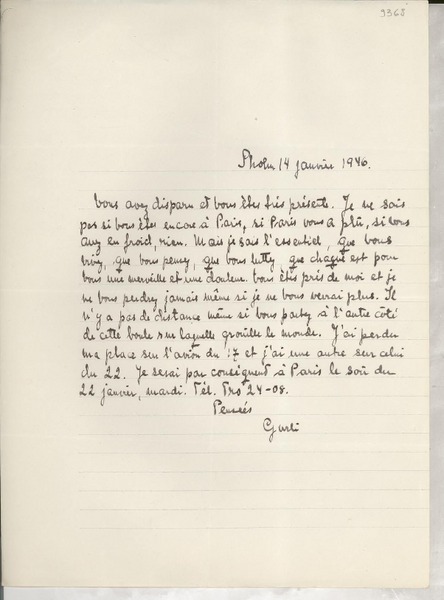 9368
Sholm 14 janvier 1946.
Vous avez disparu et vous êtes très présente. Je ne sais
pas si vous êtes encore à Paris, si Paris vous a plû, si vous
avez eu froid, rien. Mais je sais l'essentiel, que vous
vivez, que vous pensez, que vous luttez, que chaque est pour
vous une merveille et une douleur. Vous êtes près de moi et je
ne vous perdrez jamais même si je ne vous verrai plus. Il
n'y a pas de distance même si vous partez à l'autre côté
de cette boule sur laquelle grouille le monde. J'ai perdu
ma place sur l'avion du 17 et j'ai une autre sur celui
du 22. Je serai par conséquent à Paris le soir du
22 janvier, mardi. Tél. Tro 24-08.
Pensées
Gurli